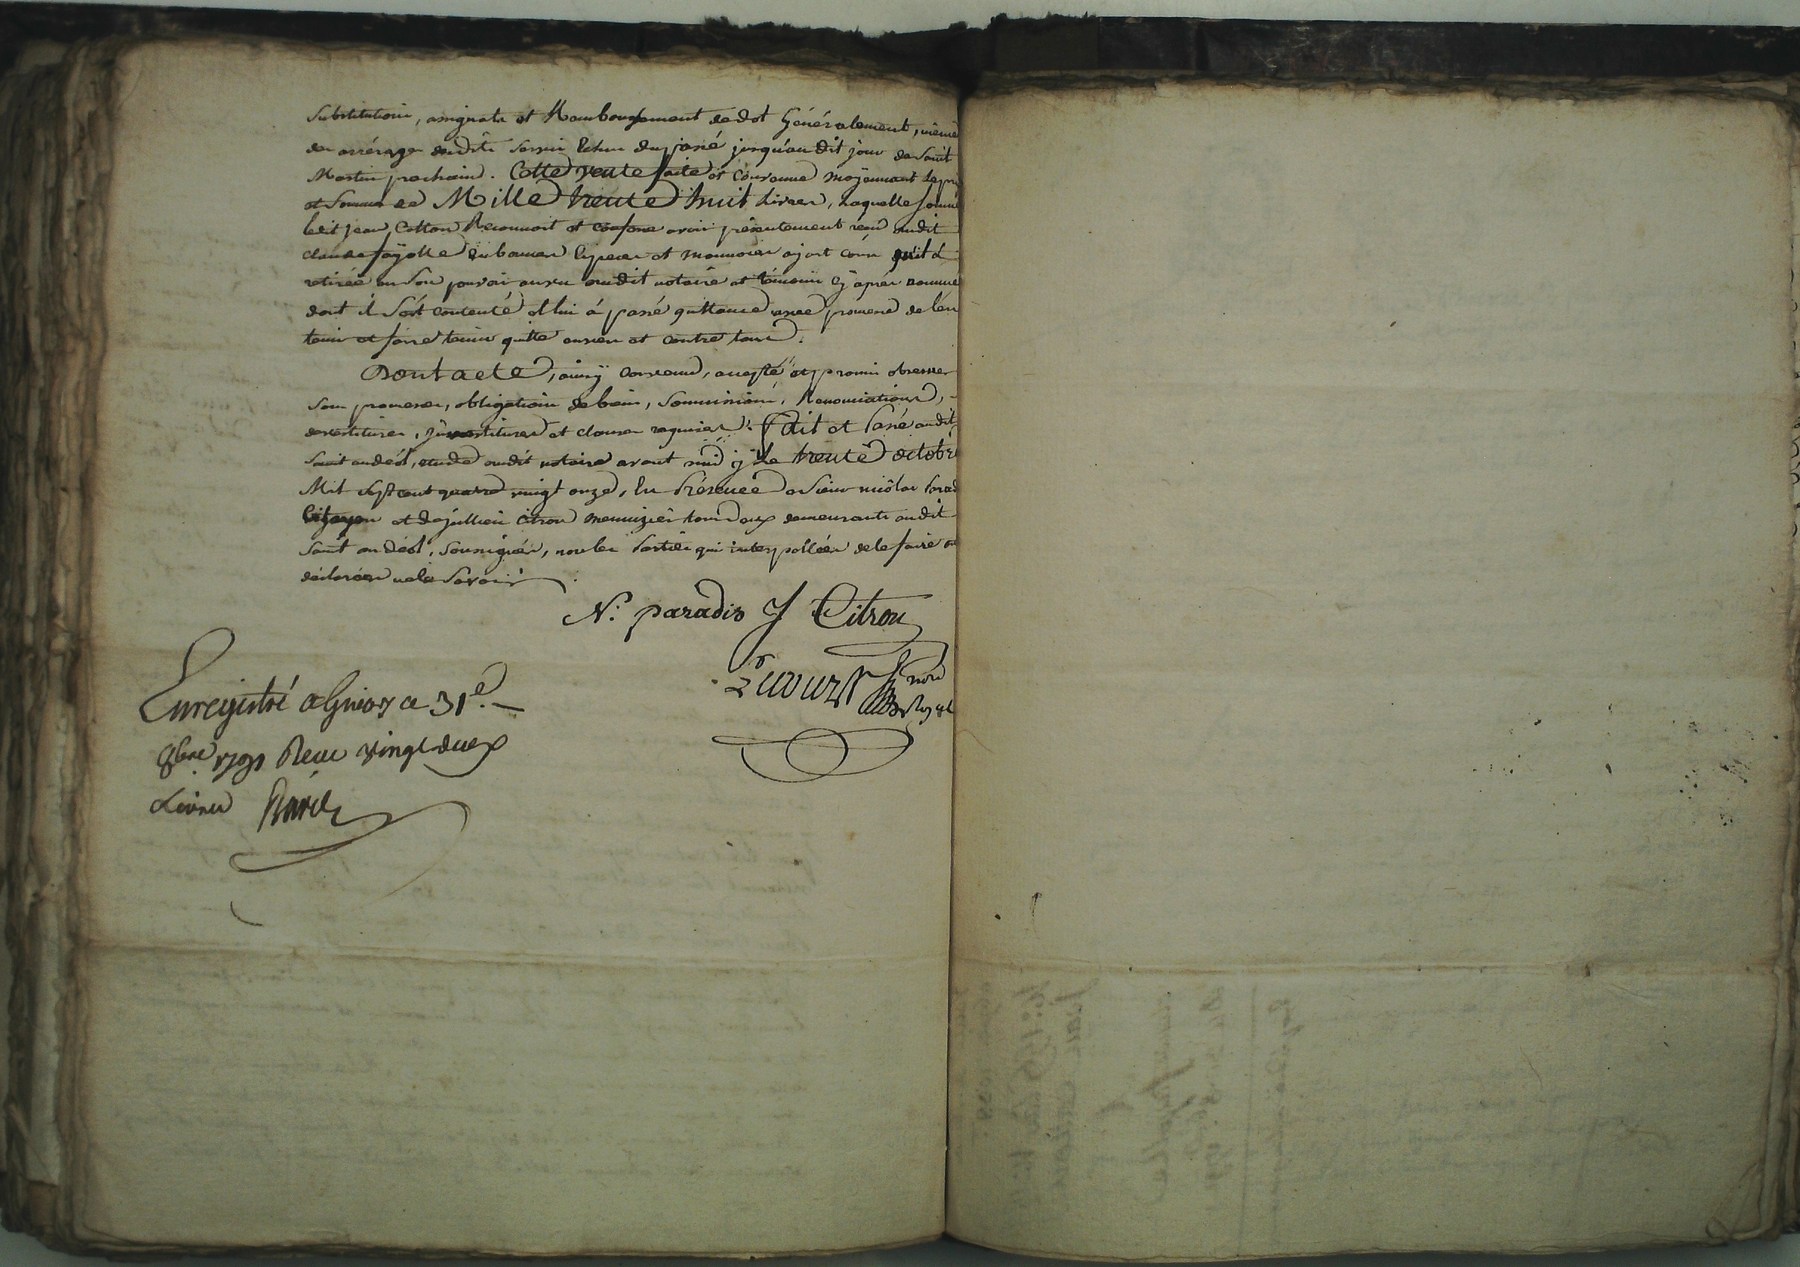 substitution, assignats et Rambourssement de dot Généralement, même
des arrérages desdits servis échus du passé jusqu'au dit jour de saint
Martin prochain. Cette vente faite et convenue moyennant le prix
et Somme de Mille trente huit Livres, Laquelle somme
ledit jean Cotton Reconnoit et confesse avoir présentement reçu dudit
claude fayolle en bonnes Espèces et monnoies ajant cours qu'il a
retirée en son pouvoir au vu dudit notaire et témoins cy après nommés
dont il s'est contenté et lui á passé quittance avec promesse de l'en
tenir et faire tenir quitte envers et contre tous.
Dont acte, ainsÿ convenu, accepté et promis observer
sous promesses, obligation de biens, soumissions, Renonciations,
devestitures, jnvestitures et clauses requises. Fait et Passé audit
saint andéol, etude dudit notaire avant midi ce trente octobre
Mil sept cent quatre vingt onze, En Présence de sieur nicolas Parad
Citoyen et de jullien citron menuizier tous deux demeurants audit
saint andéol, soussignés, non les Parties qui interpellées de le faire ont
déclarées ne le savoir
N. paradis J Citron
nore
Royal
Enregistré a Givors ce 31e.
8bre 1791 Reçu vingt deux
Livres